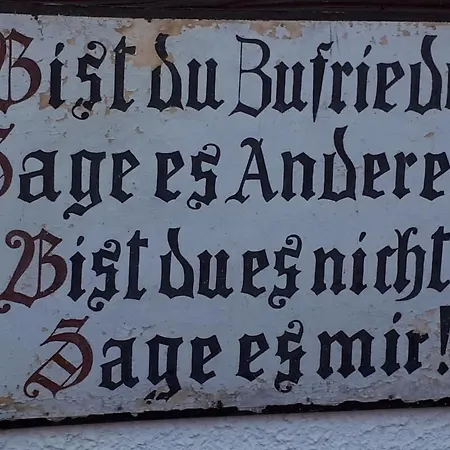 Bist du Bufriede
Sage es Andere
Bist du es nicht
Sage es mir!